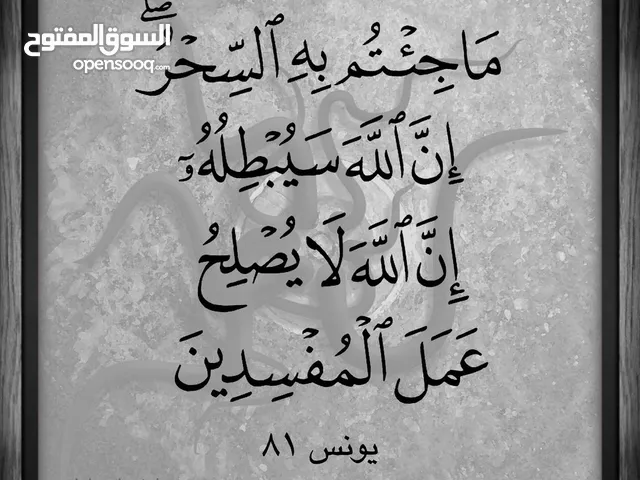 السوق المفتوح
opensooq.com
مَا جِئْتُم بِهِ ٱلسِّحْرُۖ
إِنَّ ٱللَّهَ سَيُبْطِلُهُۥٓ
إِنَّ ٱللَّهَ لَا يُصْلِحُ
عَمَلَ ٱلْمُفْسِدِينَ
يونس ٨١